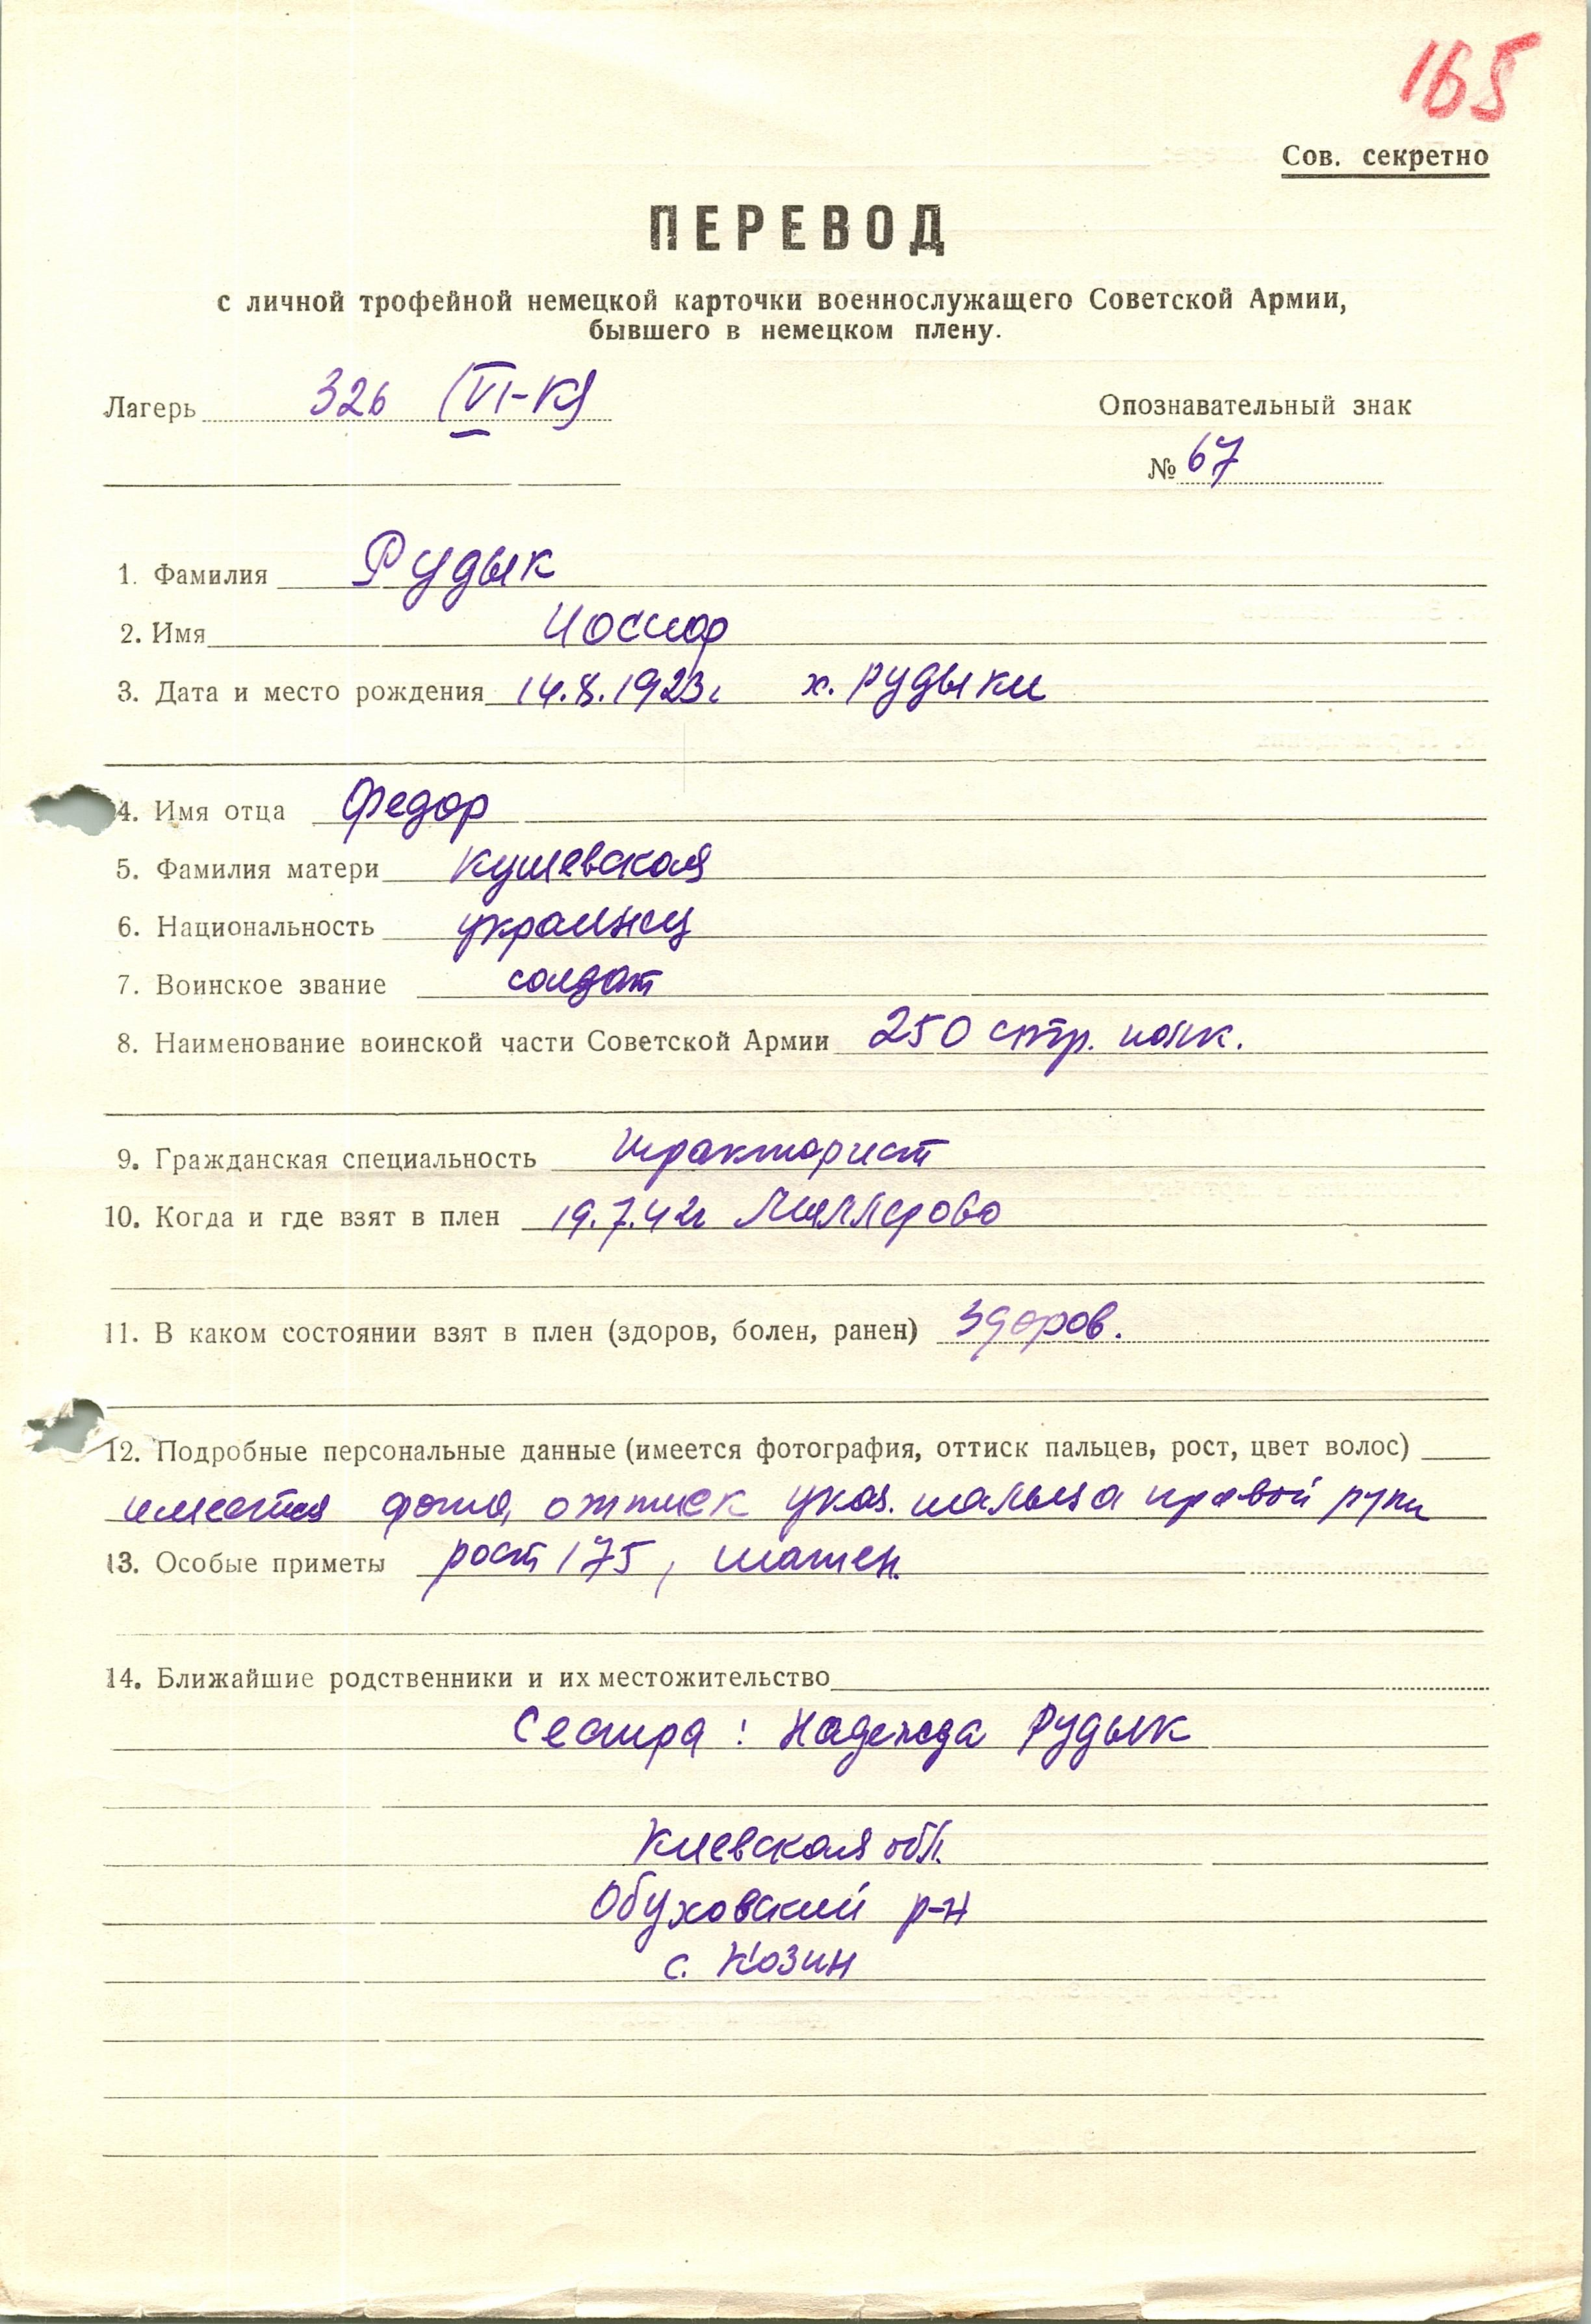 165
Сов. секретно
ПЕРЕВОД
с личной трофейной немецкой карточки военнослужащего Советской Армии,
бывшего в немецком плену.
Лагерь 326 (VI-К)
Опознавательный знак
№ 67
1. Фамилия Рудык
2. Имя Иосиф
3. Дата и место рождения 14.8.1923г х. Рудыки
4. Имя отца Федор
5. Фамилия матери Кушевская
6. Национальность украинец
7. Воинское звание солдат
8. Наименование воинской части Советской Армии 250 стр. полк.
9. Гражданская специальность тракторист
10. Когда и где взят в плен 19.7.42г Миллерово
11. В каком состоянии взят в плен (здоров, болен, ранен) здоров.
12. Подробные персональные данные (имеется фотография, оттиск пальцев, рост, цвет волос)
имеется фото, оттиск указ. пальца правой руки
13. Особые приметы рост 175, шатен.
14. Ближайшие родственники и их местожительство
Сестра: Надежда Рудык
Киевская обл.
Обуховский р-н
с. Козин